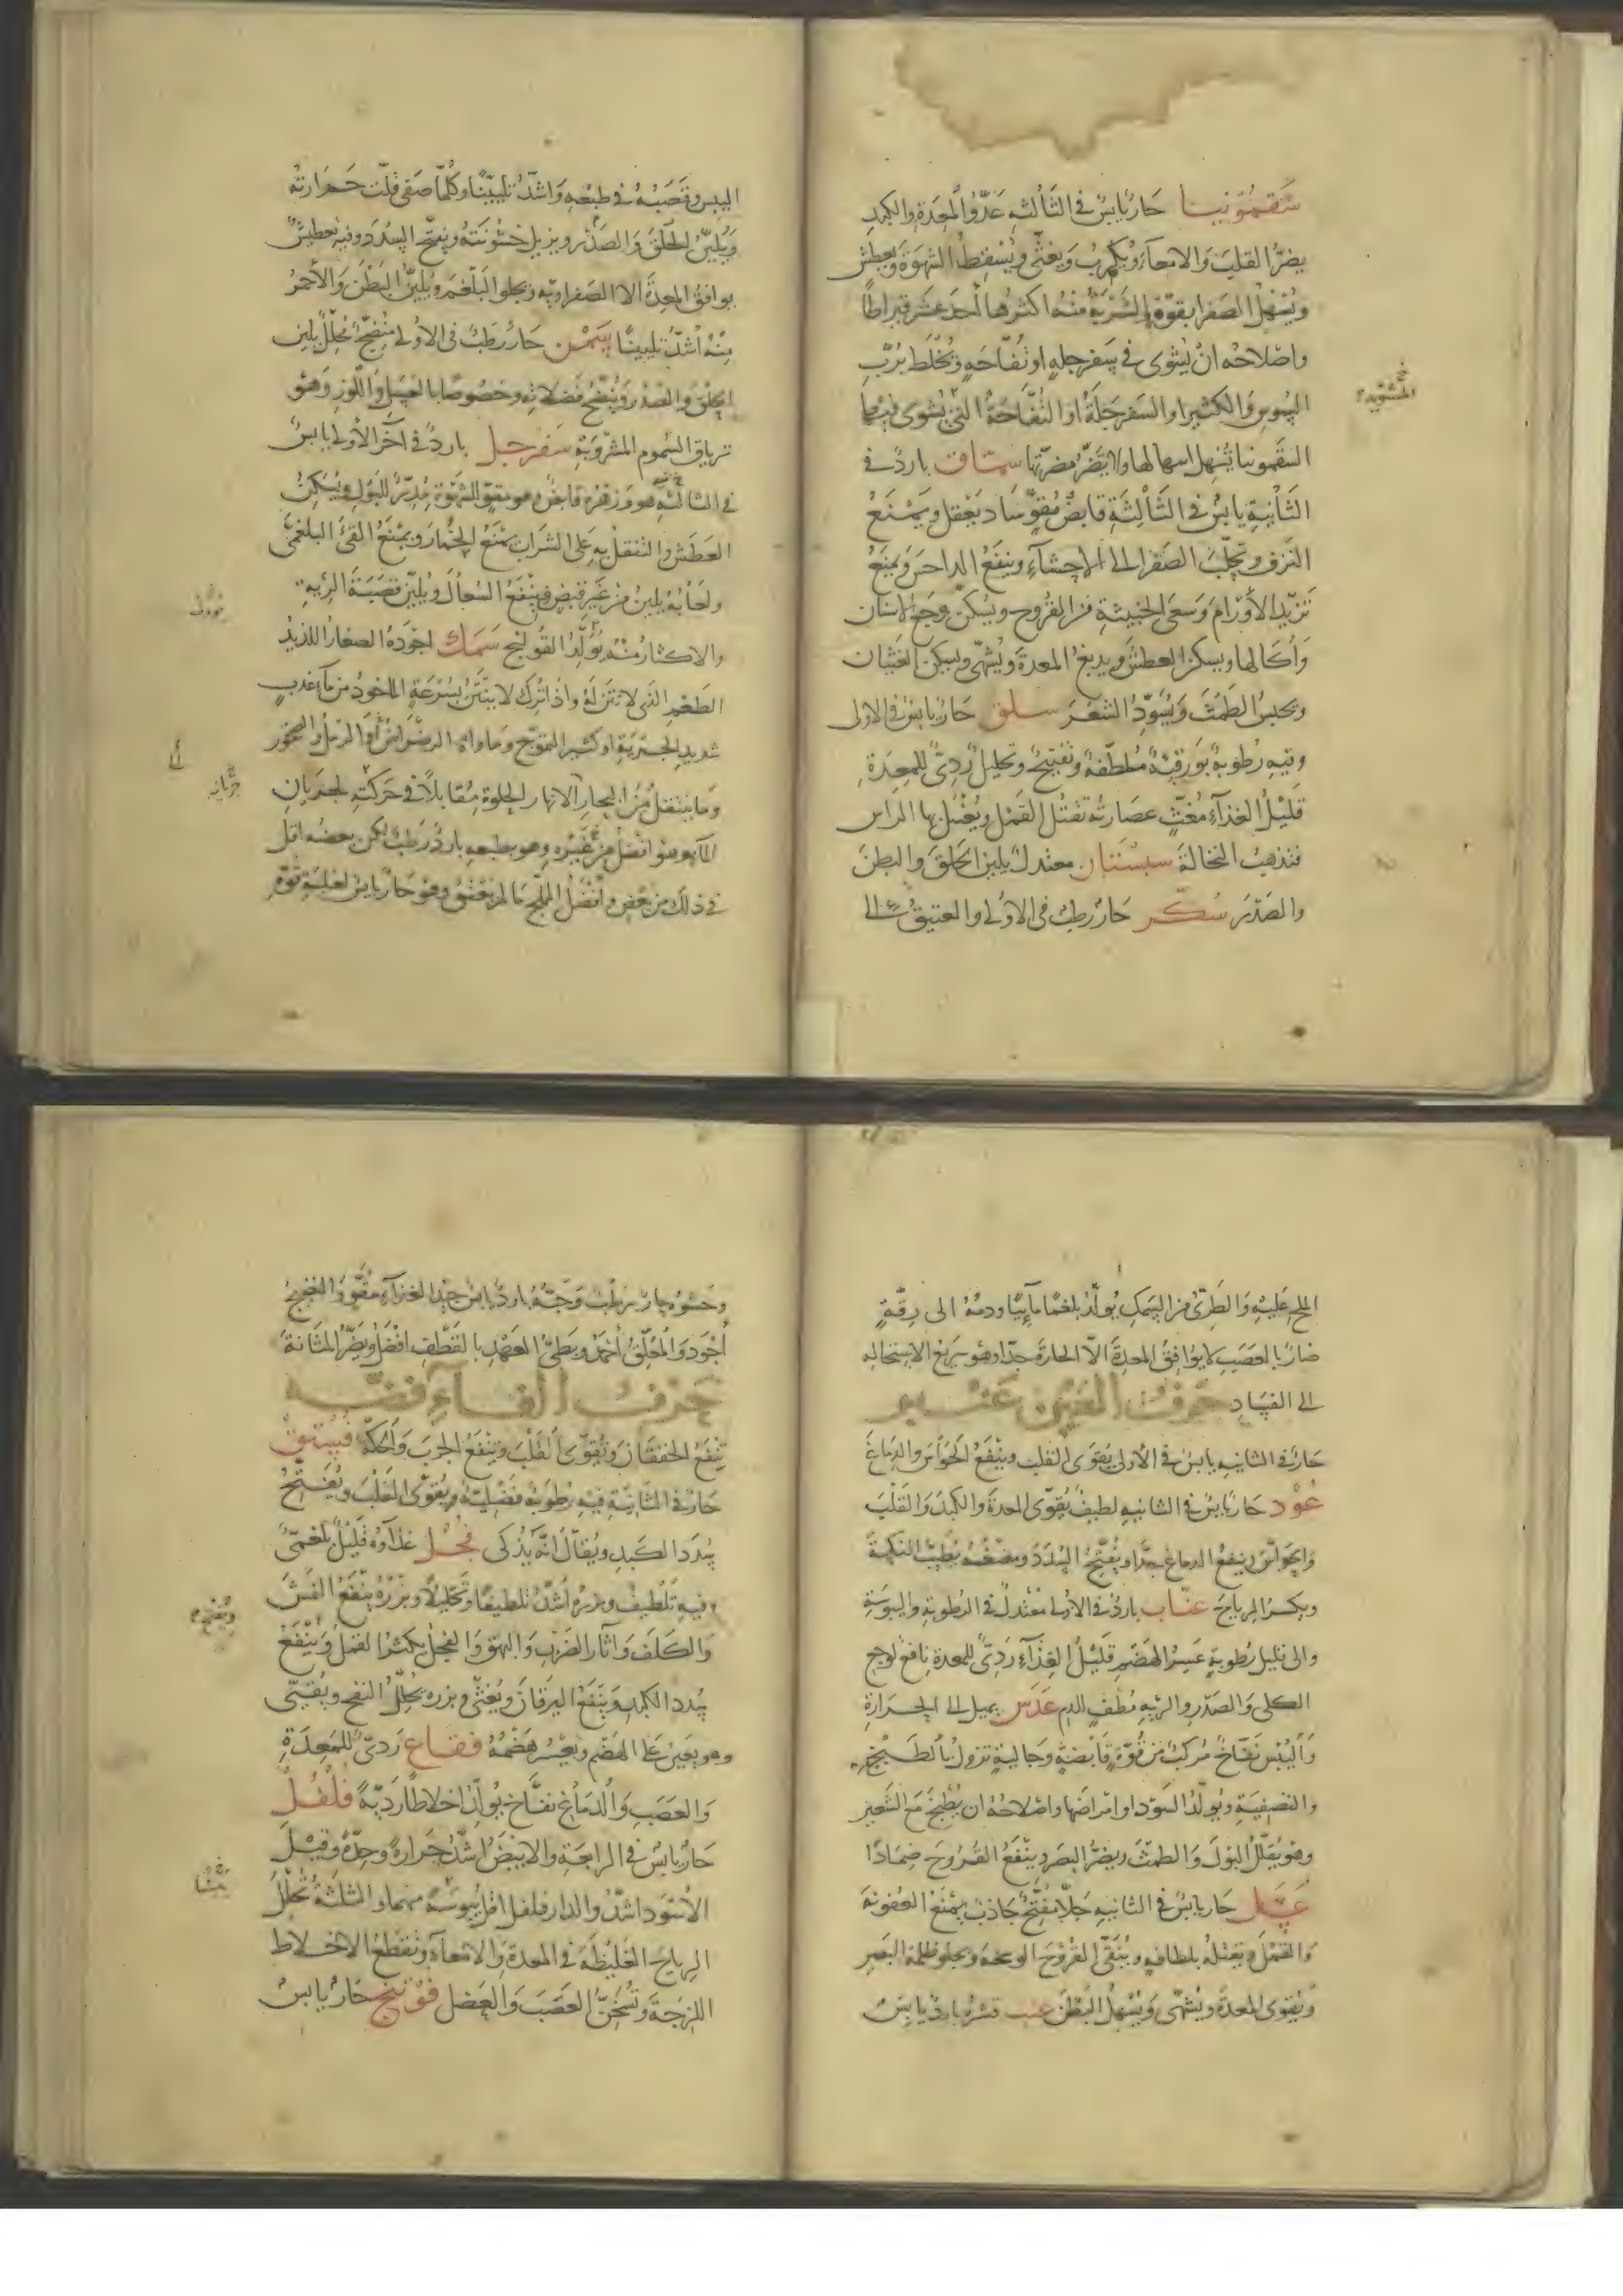 سقمونيا حار يابس في الثالثة عدو المعدة والكبد
يضر القلب والامعاء ويكرب ويغثي ويسقط الشهوة ويعطش
ويسهل الصفرا بقوة الشربة منه اكثرها احد عشر قيراطا
واصلاحه ان يشوى في سفرجله او تفاحه ويخلط برب
السوس والكثيرا والسفرجلة او التفاحة التي يشوى فيها
السقمونيا يسهل اسهالها ولا يضر مضرتها سماق بارد في
الثانية يابس في الثالثة قابض مقو ساد يعقل ويمنع
النزف وتحلب الصفرا الى الاحشاء وينفع الداحس ويمنع
تزيد الأورام وسعى الخبيثة من القروح ويسكن وجع الاسنان
وأكالها ويسكن العطش ويدبغ المعدة ويشهي ويسكن الغثيان
ويحبس الطمث ويسود الشعر سلق حار يابس في الاولى
وفيه رطوبة بورقية ملطفة وتفتيح وتحليل ردي للمعدة
قليل الغذاء مغث عصارته تقتل القمل ويغسل بها الراس
فتذهب النخالة سبستان معتدل يلين الحلق والبطن
والصدر سكر حار رطب في الاولى والعتيق الى
اليبس وقصبه في طبعه واشد تليينا وكلما صفى قلت حرارته
ويلين الحلق والصدر ويزيل خشونته ويفتح السدد وفيه تعطيش
يوافق المعدة الا الصفراوية ويجلو البلغم ويلين البطن والأحمر
منه اشد تليينا سمن حار رطب في الاولى منضج محلل يلين
الحلق والصدر وينضج فضلاته وخصوصا بالعسل واللوز وهو
ترياق السموم المشروبة سفرجل بارد في آخر الأولى يابس
في الثالثة هو وزهره قابض وهو مقو للشهوة مدر للبول ويسكن
العطش والتنقل به على الشراب يمنع الخمار ويمنع القئ البلغمي
ولعابه يلين من غير قبض فينفع السعال ويلين قصبة الرية
والاكثار منه يولد القولنج سمك اجوده الصغار اللذيذ
الطعم الذي لا نتن له واذا ترك لا ينتن بسرعة الماخوذ من ماء عذب
شديد الجرية او كثير التموج وماواه الرضراض أو الرمل والصخور
وما ينتقل من البحار الانهار الحلوة مقابلا في حركته لجريان
الماء هو افضل من غيره وهو بطبعه بارد رطب لكن بعضه اقل
في ذلك من بعض وأفضل المملح ما لم يعتق وهو حار يابس لغلبة قوة
جريانه
الملح عليه والطري من السمك يولد بلغما مائيا ودمه الى رقة
ضار بالعصب لا يوافق المعدة الا الحارة جدا وهو سريع الاستحاله
الى الفساد حرف العين عنبر
حار في الثانيه يابس في الاولى يقوى القلب وينفع الحواس والدماغ
عود حار يابس في الثانيه لطيف يقوى المعدة والكبد والقلب
والحواس وينفع الدماغ جدا ويفتح السدد ومضغه يطيب النكهة
ويكسر الرياح عناب بارد في الاولى معتدل في الرطوبة واليبوسة
والى قليل رطوبة عسر الهضم قليل الغذاء ردي للمعدة نافع لوجع
الكلى والصدر والرية مطف للدم عدس يميل الى الحرارة
واليبس نفاخ مركب من قوة قابضة وجالية تزول بالطبخ
والتصفية ويولد السودا وامراضها واصلاحه ان يطبخ مع الشعير
وهو يقلل البول والطمث ويضر البصر وينفع القروح ضمادا
عسل حار يابس في الثانيه جلا مفتح جاذب يمنع العفونة
والقمل ويقتله بلطافه وينقى القروح الوسخة ويجلو ظلمة البصر
ويقوى المعدة ويشهى ويسهل البطن عنب قشره بارد يابس
وحشوه حار رطب وحبه بارد يابس جيد الغذاء مقو والنضيج
أجود والمعلق أحمد وبطئ العهد بالقطف افضل ويضر المثانة
حرف الفاء فضه
تنفع الخفقان وتقوى القلب وتنفع الجرب والحكة فستق
حار في الثانية فيه رطوبة فضلية ويقوى القلب ويفتح
سدد الكبد ويقال انه يذكى فجل غذاؤه قليل بلغمي
وفيه تلطيف وبزره اشد تلطيفا وتحليلا وبزره ينفع النمش
والكلف وآثار الضرب والبهق والفجل يكثر القمل وينفع
سدد الكبد وينفع اليرقان ويغثي وبزره يحلل النفخ ويقئ
وهو يعين على الهضم ويعسر هضمه فقاع ردي للمعدة
والعصب والدماغ نفاخ يولد اخلاطا ردية فلفل
حار يابس في الرابعة والابيض اشد حرارة وحدة وقيل
الأسود اشد والدارفلفل اقل يبوسة منهما والثلثة تحلل
الرياح الغليظة في المعدة والامعاء وتقطع الاخلاط
اللزجة وتسخن العصب والعضل فوتنج حار يابس